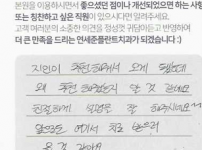 본원을 이용하시면서 좋으셨던 점이나 개선되었으면 하는 사항
또는 칭찬하고 싶은 직원이 있으시다면 알려주세요.
고객 여러분의 소중한 의견을 정성껏 귀담아듣고 반영하여
더 큰 만족을 드리는 연세준플란트치과가 되겠습니다 :)
지인이 추천해줘서 오게 됐는데
왜 추천해줬는지 알 것 같네요
친절하게 설명을 잘 해주시네요
앞으로도 여기서 치료 받으러
올 것 같아요